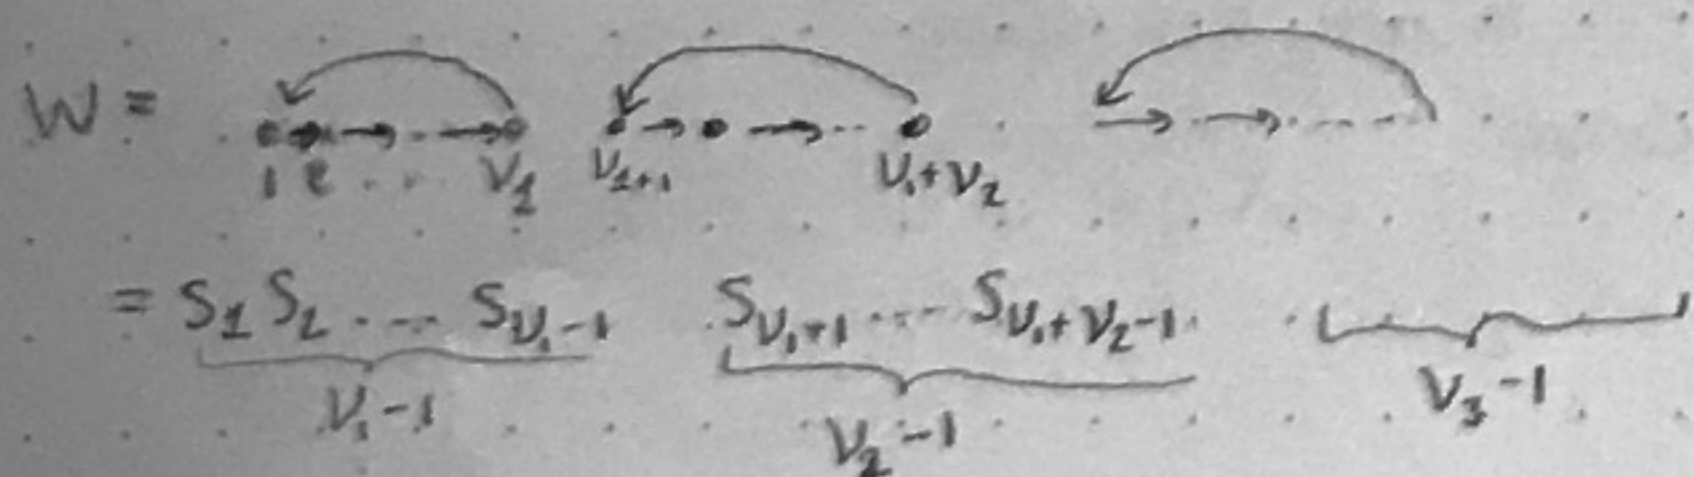 W =
1 2 . . . ν₁ ν₁₊₁ ν₁+ν₂
= S₁ S₂ . . . S_{ν₁-1} S_{ν₁+1} . . . S_{ν₁+ν₂-1}
ν₁-1 ν₂-1 ν₃-1